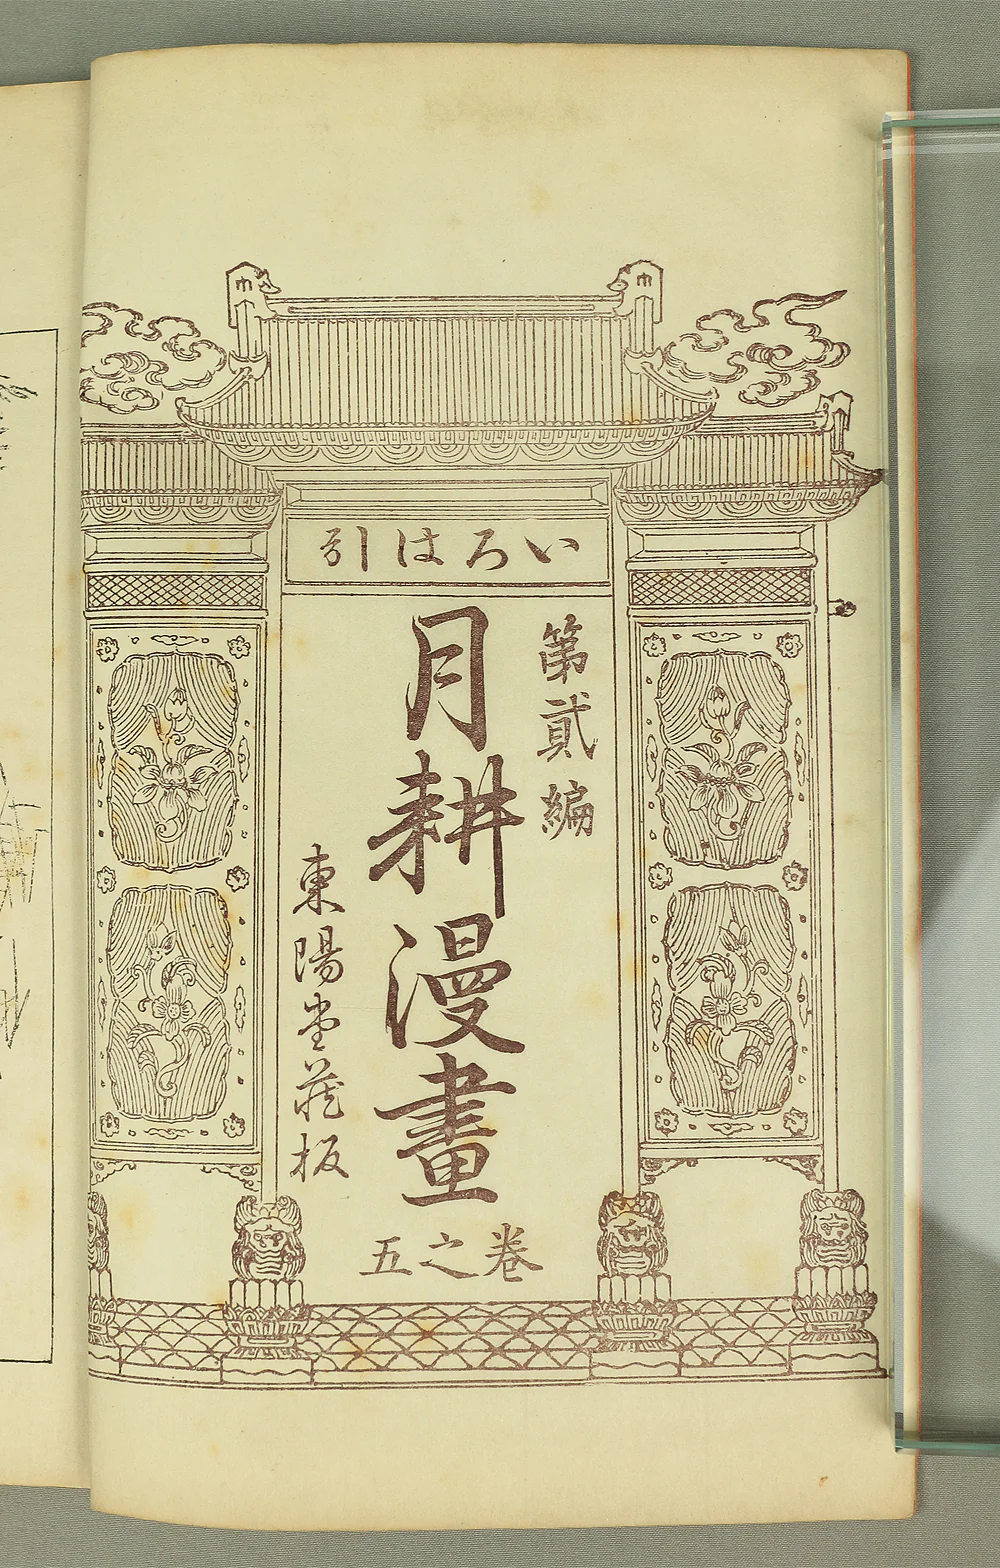 いろは引
第貳編
月耕漫畫
卷之五
東陽堂藏板